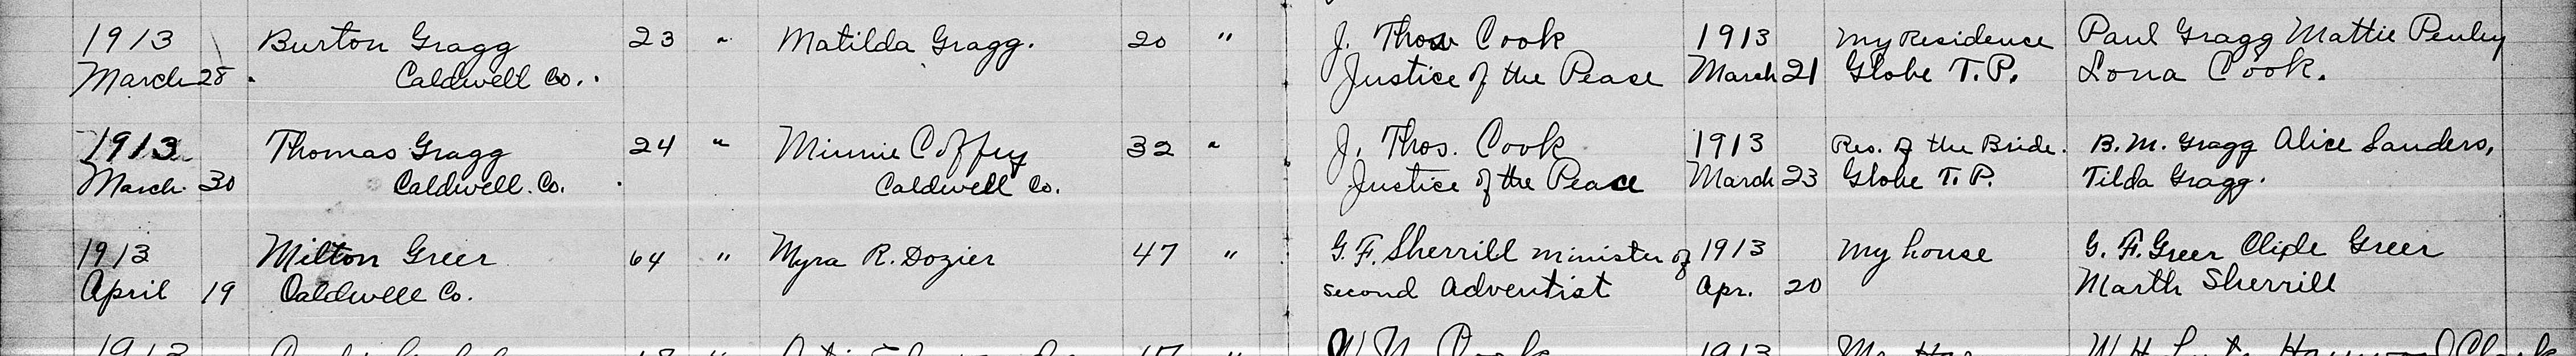 1913 Burton Gragg 23 " Matilda Gragg. 20 " J. Thos Cook 1913 My Residence Paul Gragg Mattie Penley
March 28. Caldwell Co. Justice of the Pease March 21 Globe T.P. Lona Cook.
1913 Thomas Gragg 24 " Minnie Coffey 32 " J. Thos. Cook 1913 Res. of the Bride. B.M. Gragg Alice Sanders,
March 30 Caldwell Co. Caldwell Co. Justice of the Peace March 23 Globe T.P. Tilda Gragg.
1913 Milton Greer 64 " Myra R. Dozier 47 " G.F. Sherrill minister of 1913 My house G.F. Greer Clide Greer
April 19 Caldwell Co. second Adventist Apr. 20 Marth Sherrill
1913 Cook 1913